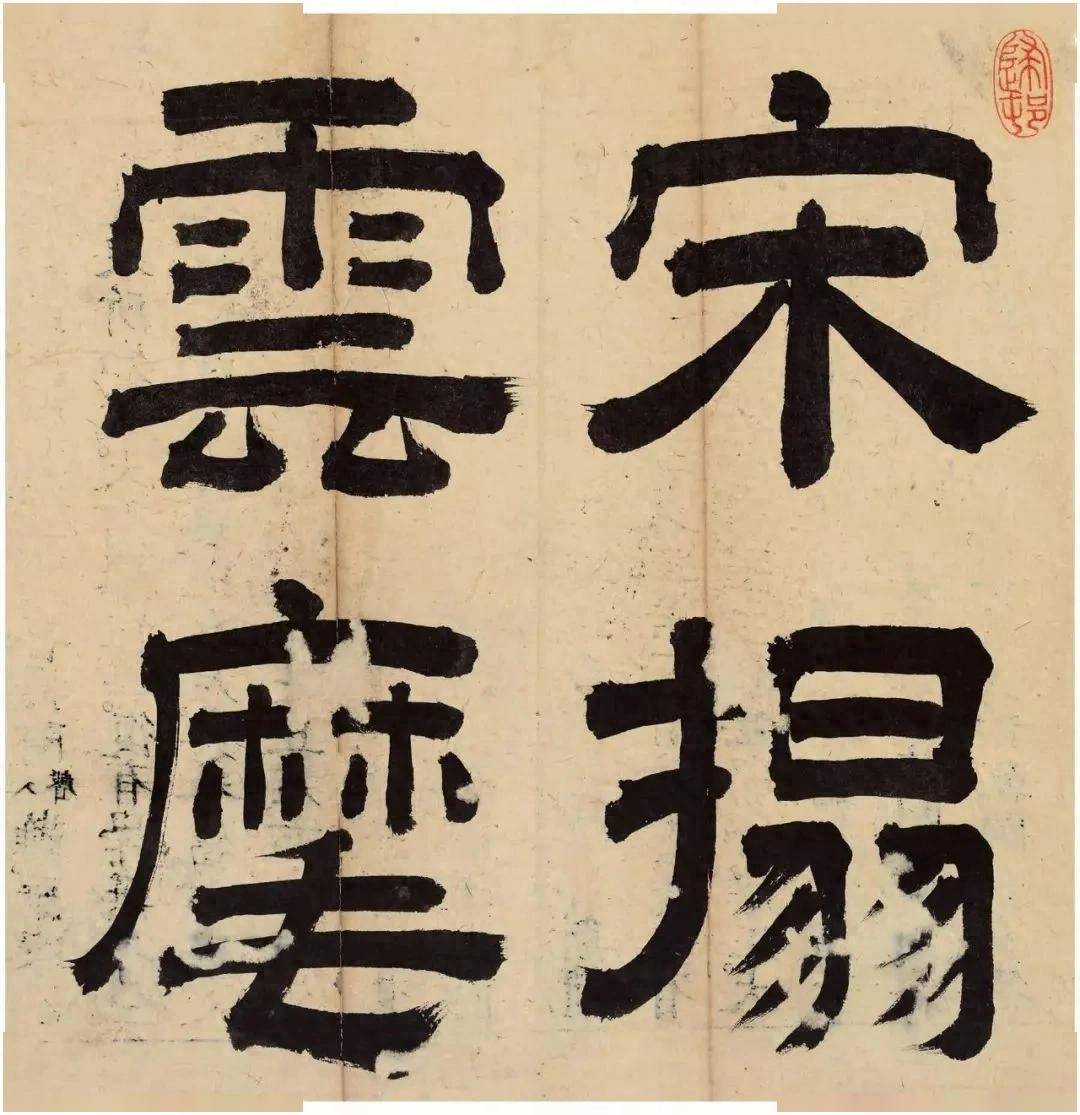 宋搨
雲麾